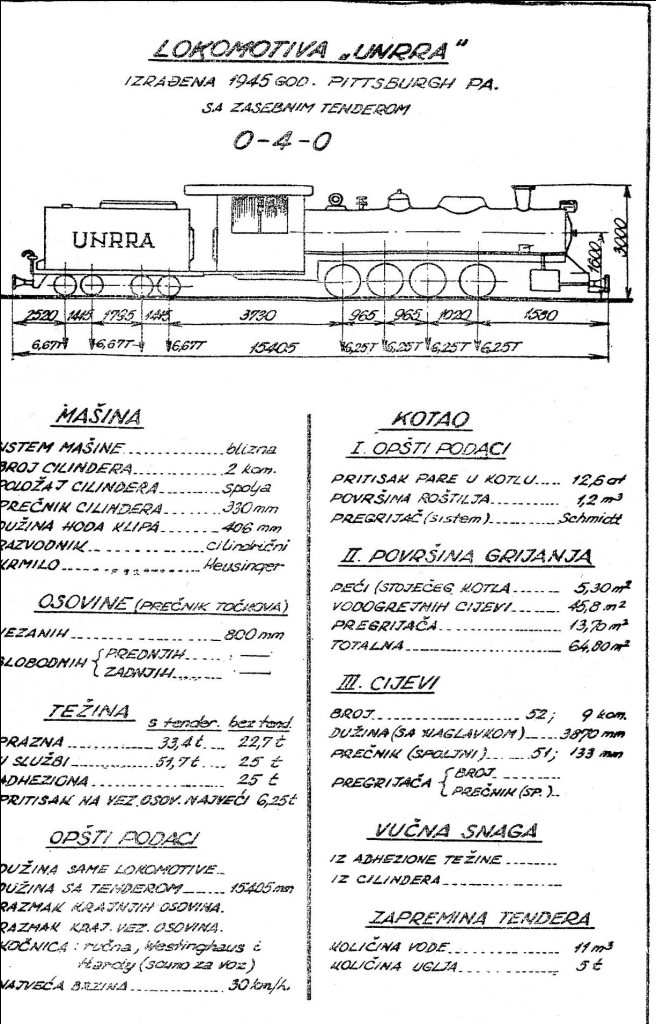 LOKOMOTIVA „UNRRA“
IZRAĐENA 1945 GOD. PITTSBURGH PA.
SA ZASEBNIM TENDEROM
0-4-0
UNRRA
1600
3000
2520 1445 1795 1445 3730 965 965 1020 1580
6,67T 6,67T 6,67T 15405 6,25T 6,25T 6,25T 6,25T
MAŠINA
ISTEM MAŠINE blizna
BROJ CILINDERA 2 kom.
POLOŽAJ CILINDERA spolja
PREČNIK CILINDERA 330 mm
DUŽINA HODA KLIPA 406 mm
RAZVODNIK cilindrični
KRMILO Heusinger
OSOVINE (PREČNIK TOČKOVA)
VEZANIH 800 mm
SLOBODNIH { PREDNJIH —
ZADNJIH —
TEŽINA s tender. bez tend.
PRAZNA 33,4 t 22,7 t
U SLUŽBI 51,7 t 25 t
ADHEZIONA 25 t
PRITISAK NA VEZ. OSOV. NAJVEĆI 6,25 t
OPŠTI PODACI
DUŽINA SAME LOKOMOTIVE
DUŽINA SA TENDEROM 15405 mm
RAZMAK KRAJNJIH OSOVINA.
RAZMAK KRAJ. VEZ. OSOVINA.
KOČNICA : ručna, Westinghaus i
Hardy (samo za voz)
NAJVEĆA BRZINA 30 km/h.
KOTAO
I. OPŠTI PODACI
PRITISAK PARE U KOTLU 12,6 at
POVRŠINA ROŠTILJA 1,2 m³
PREGRIJAČ (sistem) Schmidt
II. POVRŠINA GRIJANJA
PEĆI (STOJEĆEG KOTLA 5,30 m²
VODOGREJNIH CIJEVI 45,8 m²
PREGRIJAČA 13,70 m²
TOTALNA 64,80 m²
III. CIJEVI
BROJ 52; 9 kom.
DUŽINA (SA NAGLAVKOM) 3870 mm
PREČNIK (SPOLJNI) 51; 133 mm
PREGRIJAČA { BROJ
PREČNIK (SP.)
VUČNA SNAGA
IZ ADHEZIONE TEŽINE
IZ CILINDERA
ZAPREMINA TENDERA
KOLIČINA VODE 11 m³
KOLIČINA UGLJA 5 t